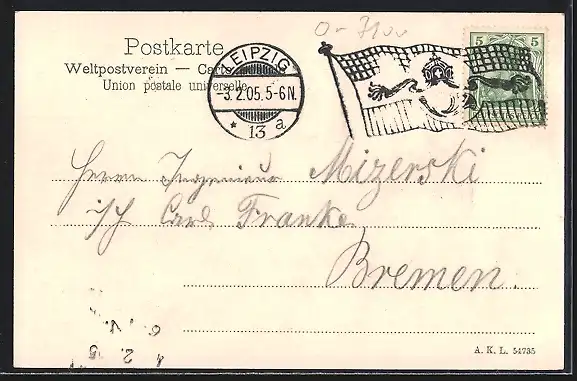 O - 7100
Postkarte
Weltpostverein — Carte
Union postale universelle
LEIPZIG
-3.2.05.5-6N.
* 13 a
5
Herrn Ingenieur Mizerski
i/H Carl Franke
Bremen.
A. K. L. 54735